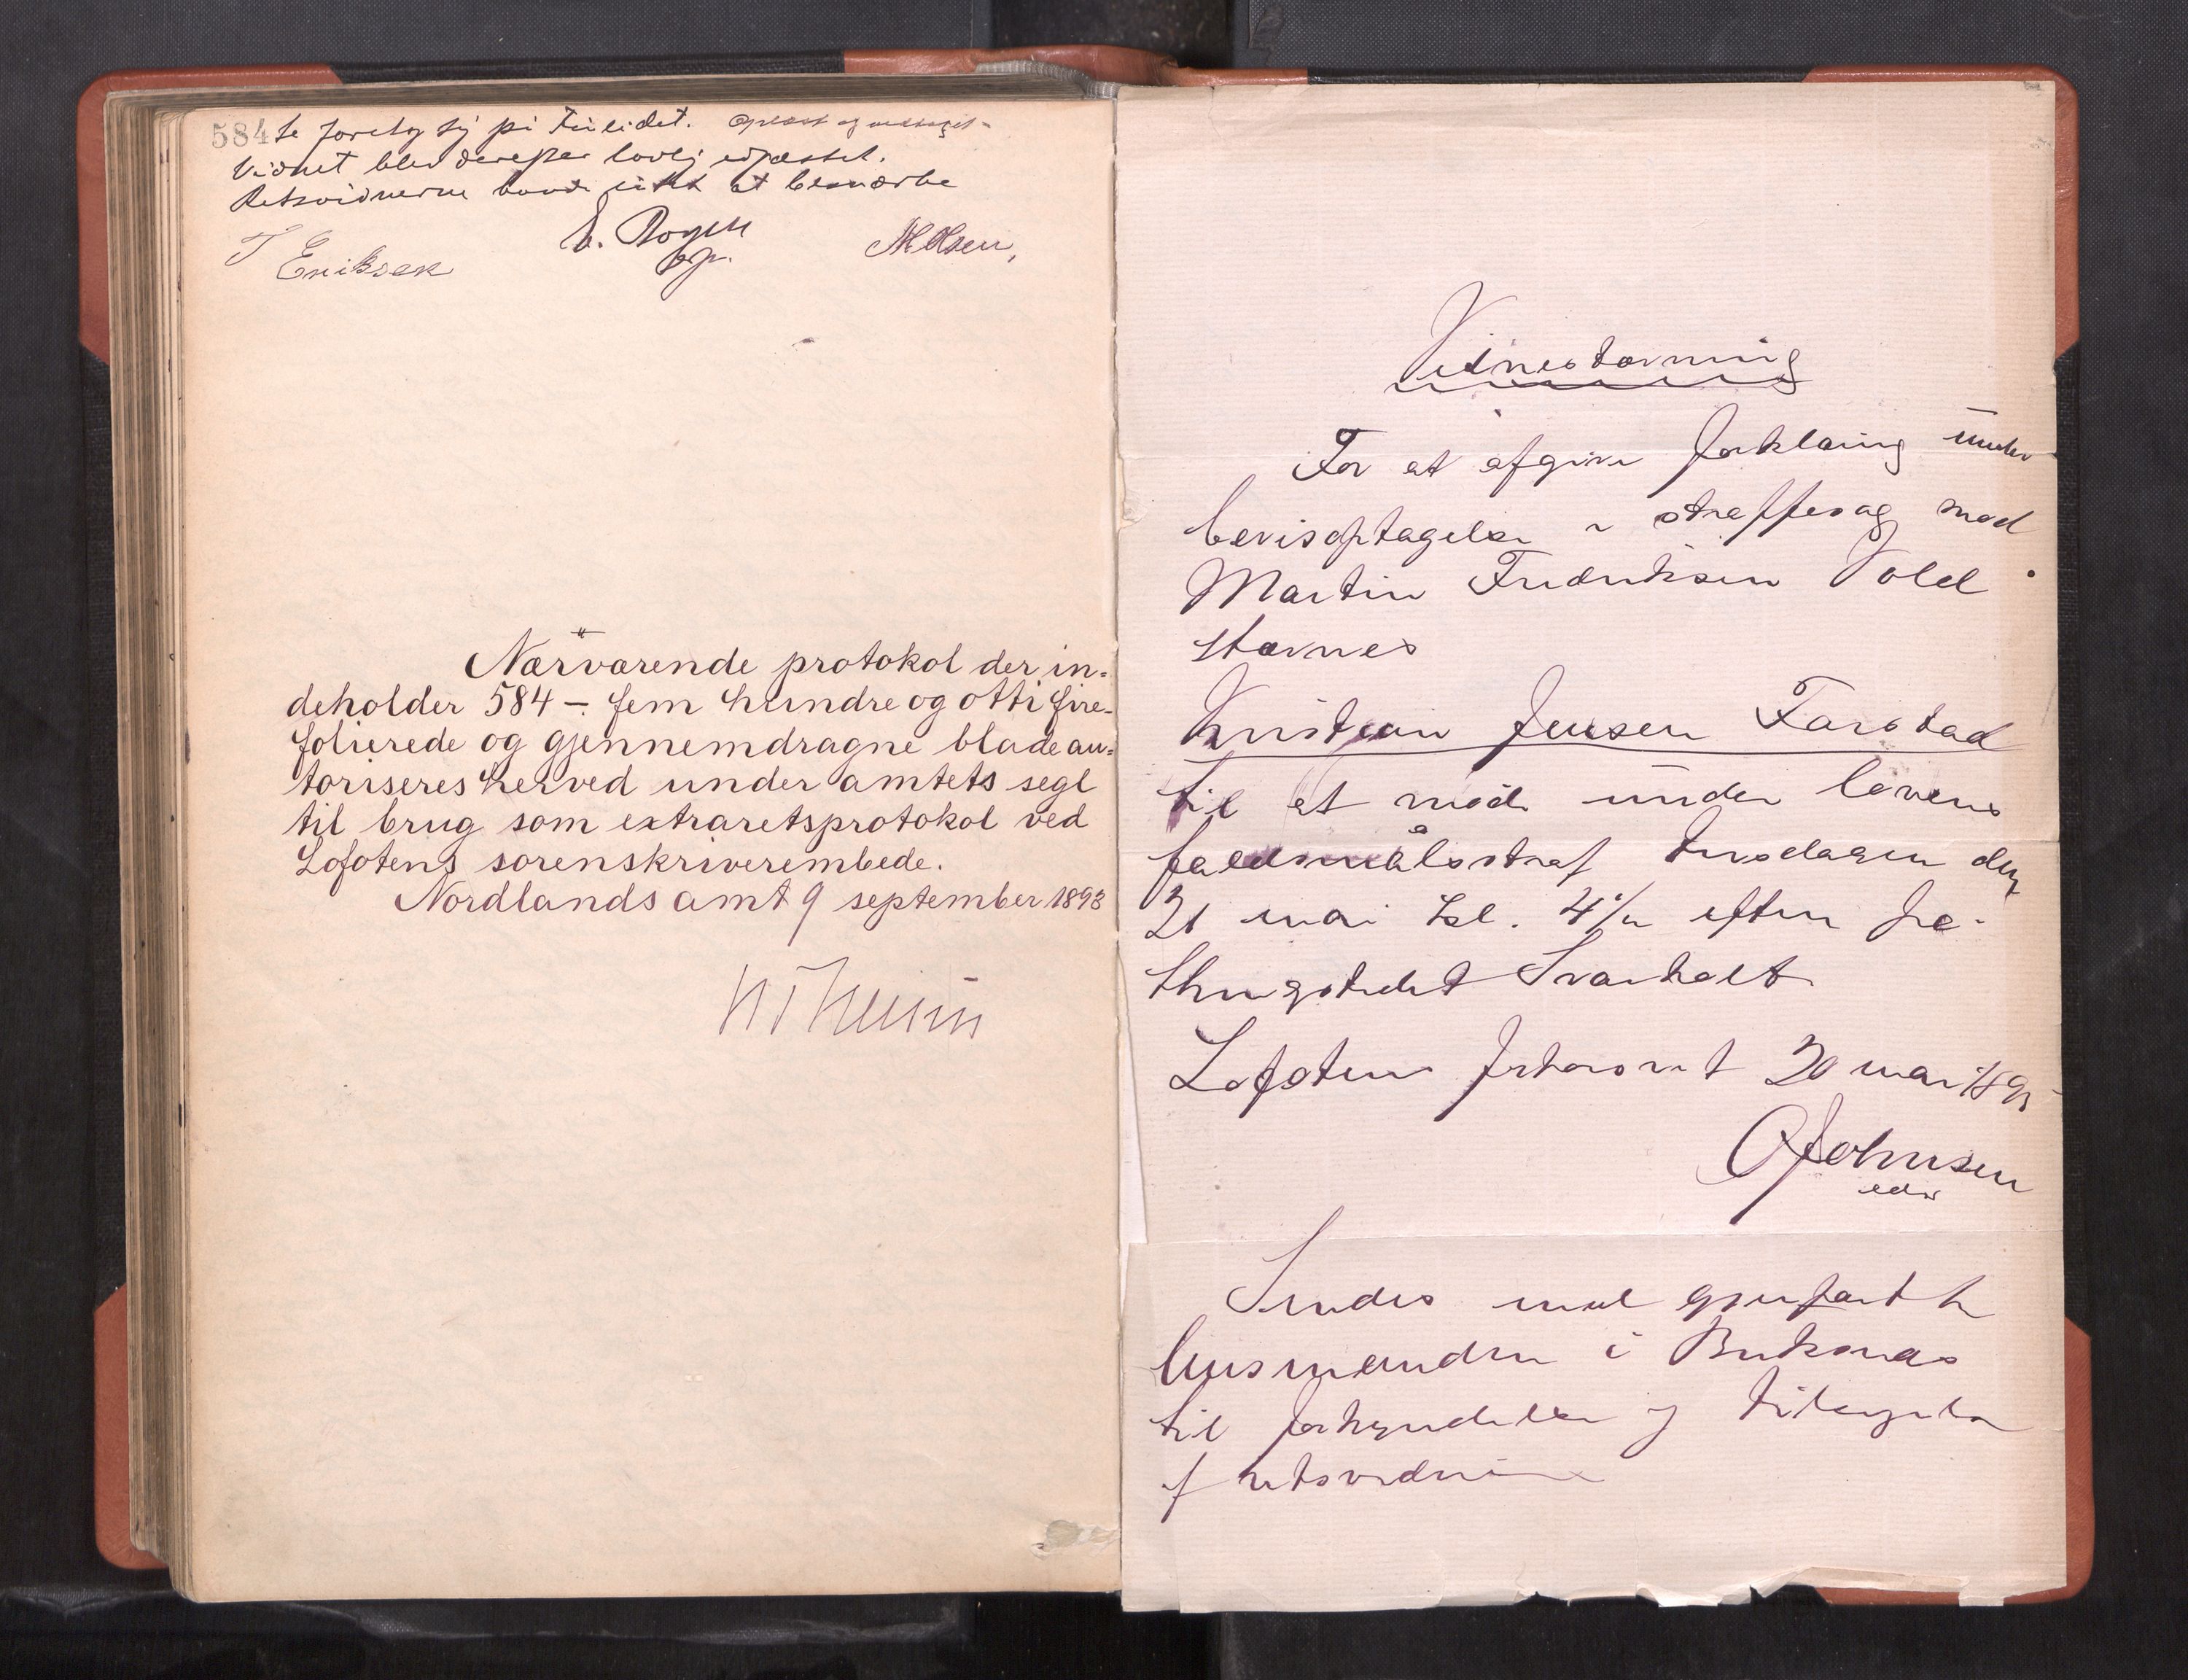 584
te foretog sig på Tinlidet. Oplæst og vedtaget.
Vidnet blev derefter lovlig edfæstet.
Retsvidnerne havde intet at bemærke
T Eriksen
E. Rogen
M Olsen,
Nærværende protokol der in=
deholder 584 - fem hundre og otti fire-
folierede og gjennemdragne blade au=
toriseres herved under amtets segl
til brug som extraretsprotokol ved
Lofotens sorenskriverembede.
Nordlands amt 9 september 1893
Vidnestævning
For at afgive forklaring under
bevisoptagelse i straffesag mod
Martin Fredriksen Vold
stævnes
Kristian Jensen Farstad
til at møde under lovens
faldsmålsstraf tirsdagen den
21 mai kl. 4 1/2 efterm på
thingstedet Svarholt
Lofotens forhørsret 20 mai 1895
O Johnsen
edsv
Sendes med gjenpart
lensmanden i Buksnæs
til forkyndelse og tilsigelse
af retsvidner